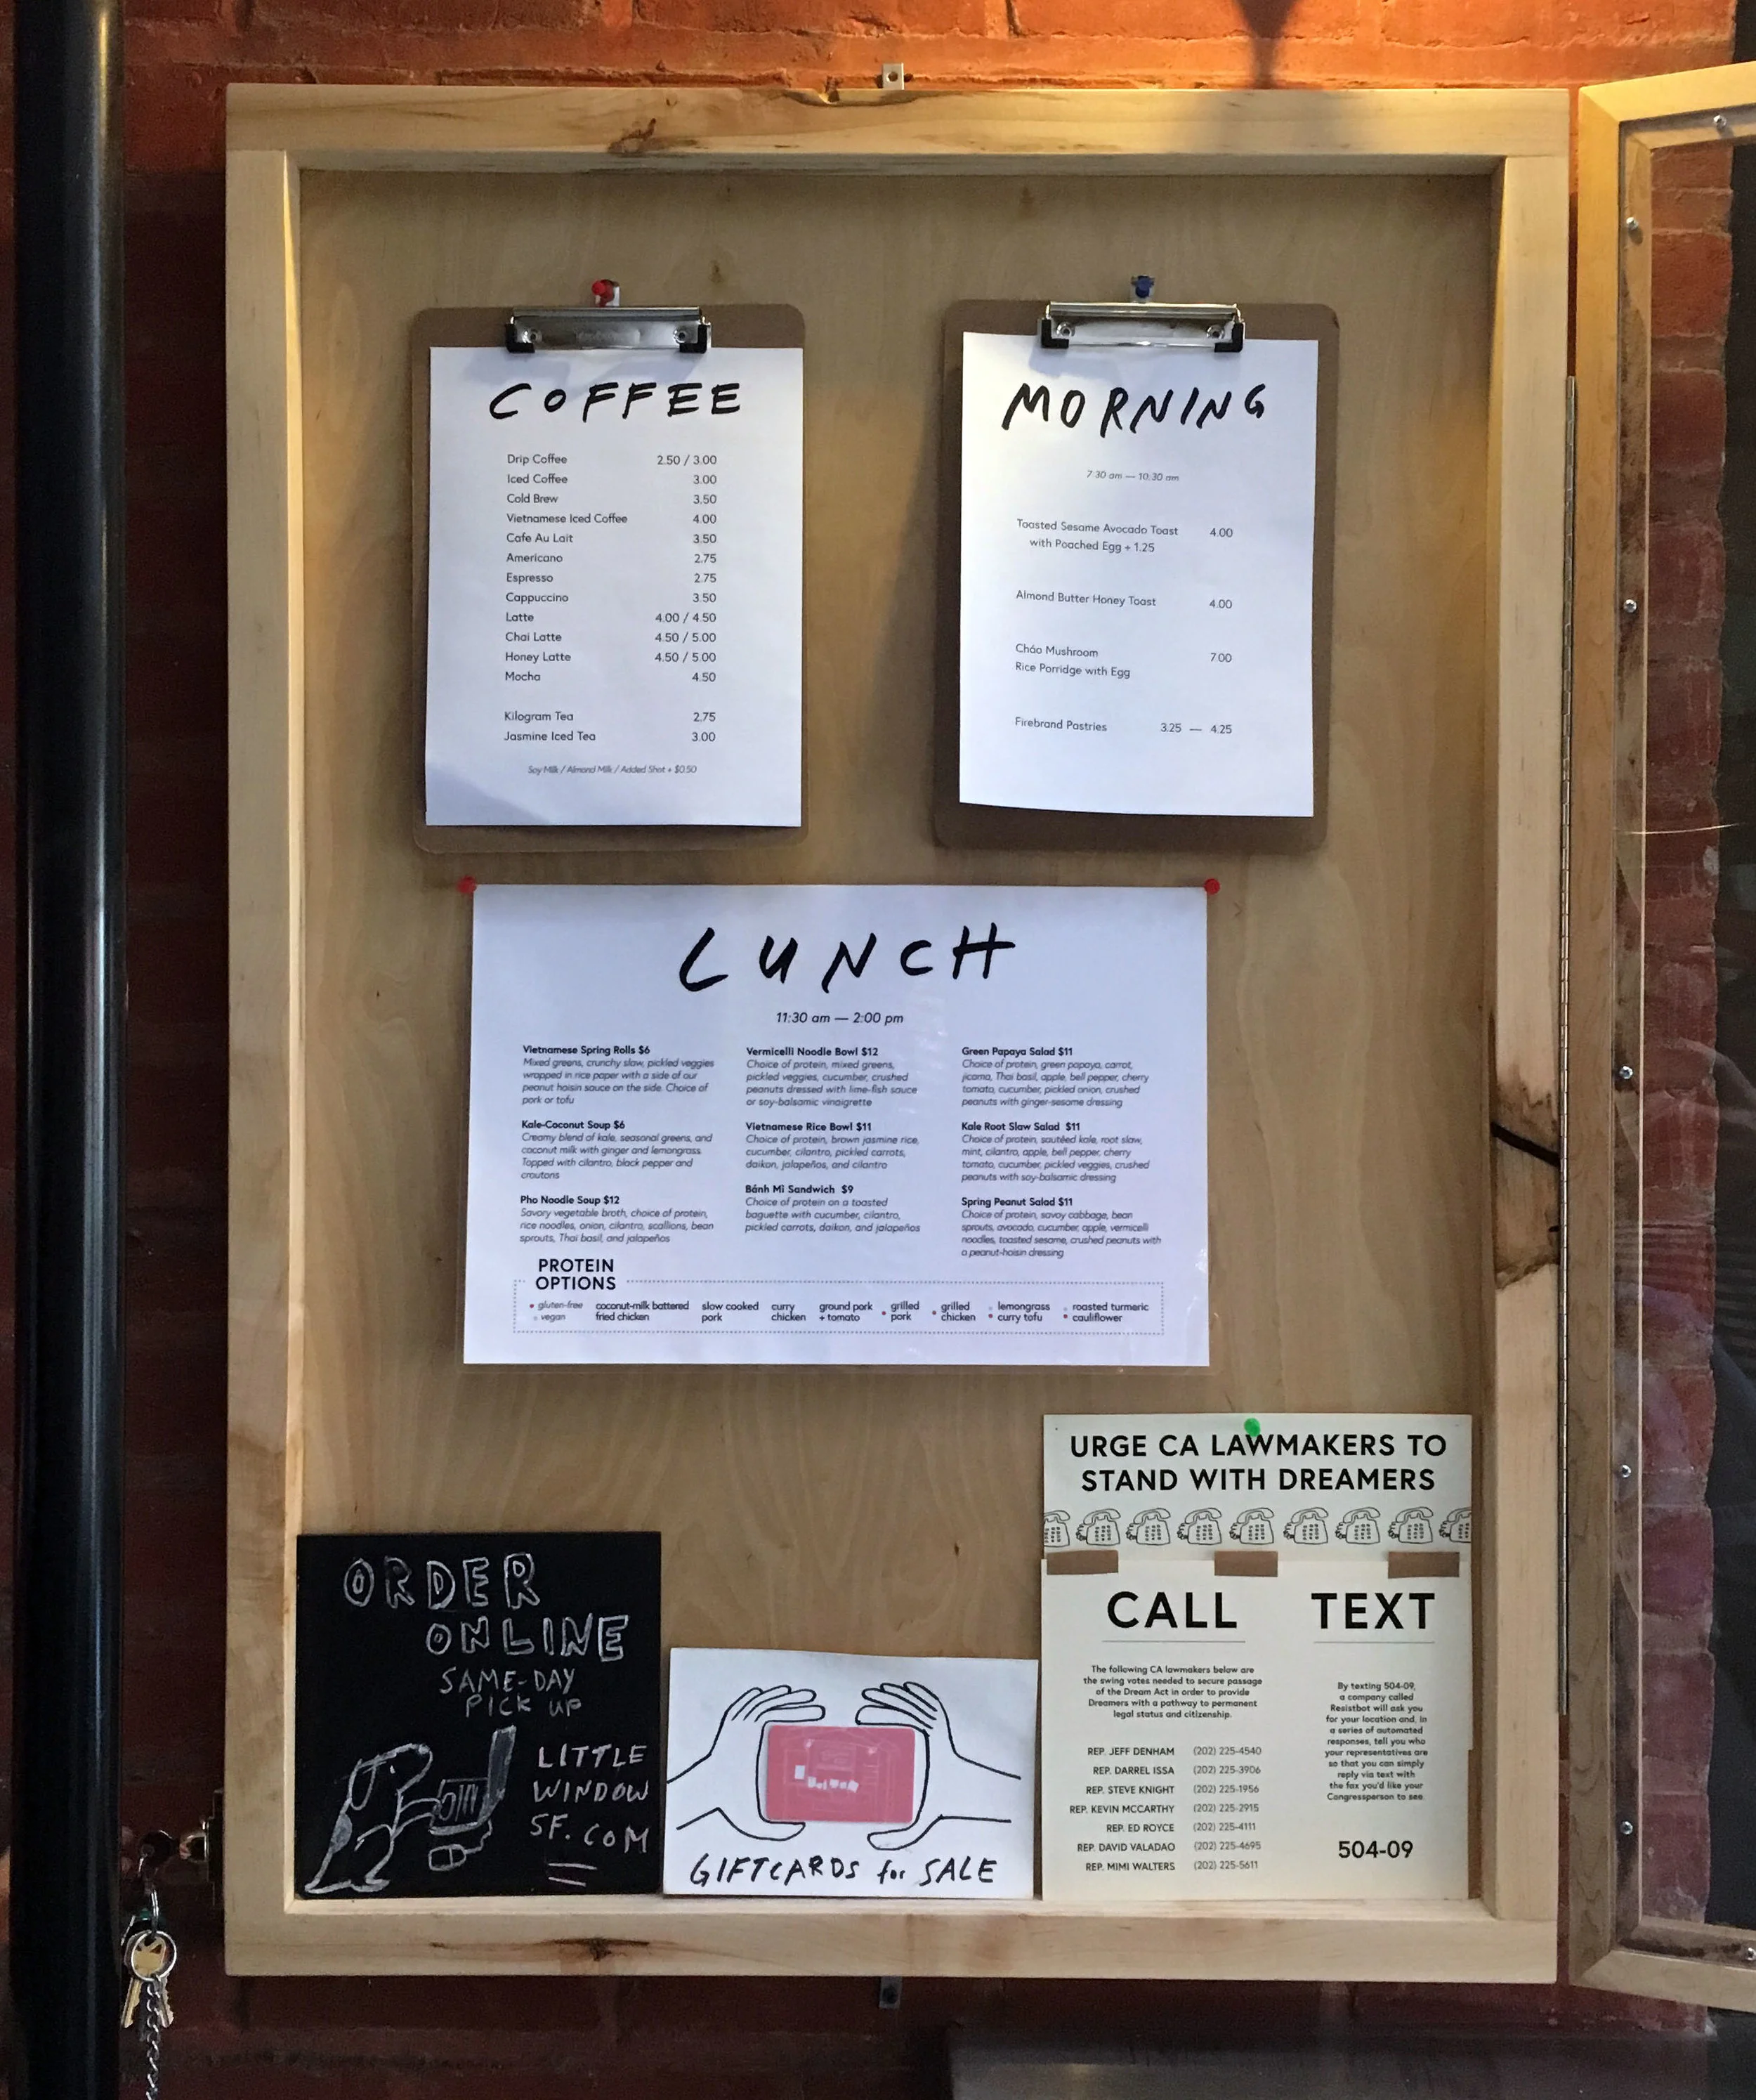 COFFEE
Drip Coffee 2.50 / 3.00
Iced Coffee 3.00
Cold Brew 3.50
Vietnamese Iced Coffee 4.00
Cafe Au Lait 3.50
Americano 2.75
Espresso 2.75
Cappuccino 3.50
Latte 4.00 / 4.50
Chai Latte 4.50 / 5.00
Honey Latte 4.50 / 5.00
Mocha 4.50
Kilogram Tea 2.75
Jasmine Iced Tea 3.00
Soy Milk / Almond Milk / Added Shot + $0.50
MORNING
7:30 am — 10:30 am
Toasted Sesame Avocado Toast 4.00
with Poached Egg + 1.25
Almond Butter Honey Toast 4.00
Cháo Mushroom 7.00
Rice Porridge with Egg
Firebrand Pastries 3.25 — 4.25
LUNCH
11:30 am — 2:00 pm
Vietnamese Spring Rolls $6
Mixed greens, crunchy slaw, pickled veggies
wrapped in rice paper with a side of our
peanut hoisin sauce on the side. Choice of
pork or tofu
Kale-Coconut Soup $6
Creamy blend of kale, seasonal greens, and
coconut milk with ginger and lemongrass
Topped with cilantro, black pepper and
croutons
Pho Noodle Soup $12
Savory vegetable broth, choice of protein,
rice noodles, onion, cilantro, scallions, bean
sprouts, Thai basil, and jalapeños
Vermicelli Noodle Bowl $12
Choice of protein, mixed greens,
pickled veggies, cucumber, crushed
peanuts dressed with lime-fish sauce
or soy-balsamic vinaigrette
Vietnamese Rice Bowl $11
Choice of protein, brown jasmine rice,
cucumber, cilantro, pickled carrots,
daikon, jalapeños, and cilantro
Bánh Mì Sandwich $9
Choice of protein on a toasted
baguette with cucumber, cilantro,
pickled carrots, daikon, and jalapeños
Green Papaya Salad $11
Choice of protein, green papaya, carrot,
jicama, Thai basil, apple, bell pepper, cherry
tomato, cucumber, pickled onion, crushed
peanuts with ginger-sesame dressing
Kale Root Slaw Salad $11
Choice of protein, sautéed kale, root slaw,
mint, cilantro, apple, bell pepper, cherry
tomato, cucumber, pickled veggies, crushed
peanuts with soy-balsamic dressing
Spring Peanut Salad $11
Choice of protein, savoy cabbage, bean
sprouts, avocado, cucumber, apple, vermicelli
noodles, toasted sesame, crushed peanuts with
a peanut-hoisin dressing
PROTEIN
OPTIONS
gluten-free
vegan
coconut-milk battered
fried chicken
slow cooked
pork
curry
chicken
ground pork
+ tomato
grilled
pork
grilled
chicken
lemongrass
curry tofu
roasted turmeric
cauliflower
ORDER
ONLINE
SAME-DAY
PICK UP
LITTLE
WINDOW
SF.COM
GIFTCARDS for SALE
URGE CA LAWMAKERS TO
STAND WITH DREAMERS
CALL
The following CA lawmakers below are
the swing votes needed to secure passage
of the Dream Act in order to provide
Dreamers with a pathway to permanent
legal status and citizenship.
REP. JEFF DENHAM (202) 225-4540
REP. DARREL ISSA (202) 225-3906
REP. STEVE KNIGHT (202) 225-1956
REP. KEVIN MCCARTHY (202) 225-2915
REP. ED ROYCE (202) 225-4111
REP. DAVID VALADAO (202) 225-4695
REP. MIMI WALTERS (202) 225-5611
TEXT
By texting 504-09,
a company called
Resistbot will ask you
for your location and, in
a series of automated
responses, tell you who
your representatives are
so that you can simply
reply via text with
the fax you'd like your
Congressperson to see.
504-09